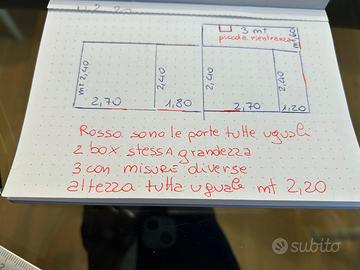 m² 20
3 mt
piccola rientranza
mt 2,40
2,40
2,40
2,40
2,70
1,80
2,70
1,20
Rosso sono le porte tutte uguali
2 box stessa grandezza
3 con misure diverse
altezza tutta uguale mt 2,20
subito